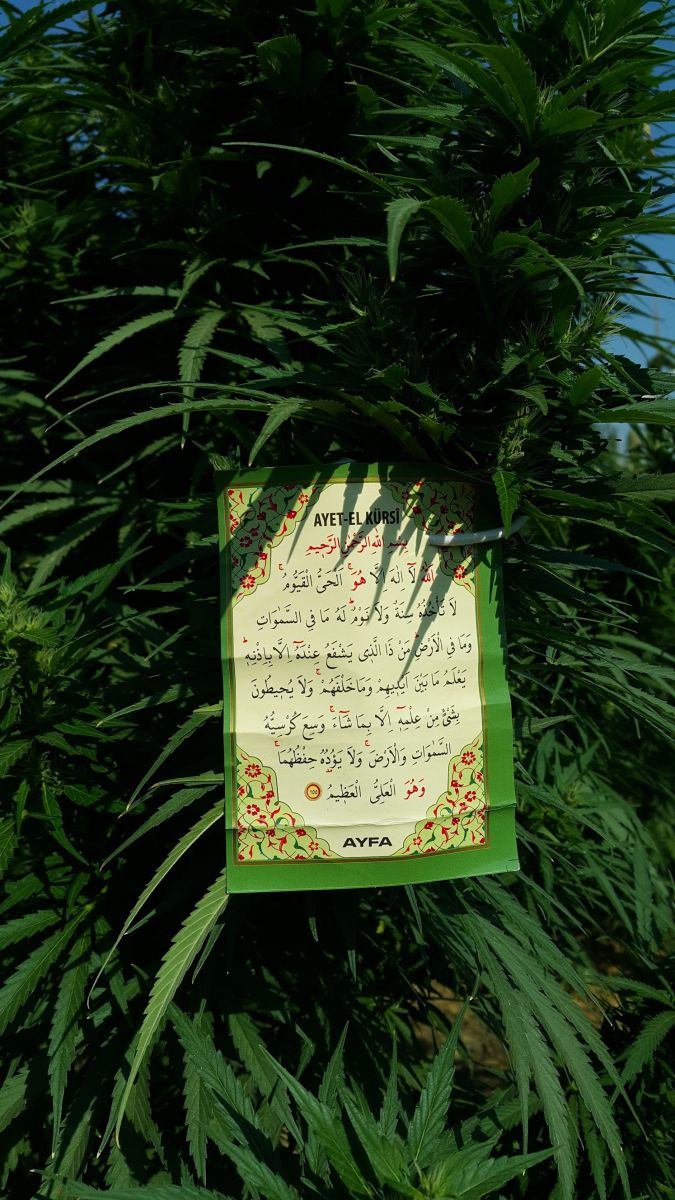 AYET-EL KÜRSİ
بِسْمِ اللّٰهِ الرَّحْمٰنِ الرَّحٖيمِ
اَللّٰهُ لَٓا اِلٰهَ اِلَّا هُوَۚ اَلْحَىُّ الْقَيُّومُۚ
لَا تَأْخُذُهُ سِنَةٌ وَلَا نَوْمٌؕ لَهُ مَا فِى السَّمٰوَاتِ
وَمَا فِى الْاَرْضِؕ مَنْ ذَا الَّذٖى يَشْفَعُ عِنْدَهُٓ اِلَّا بِاِذْنِهٖؕ
يَعْلَمُ مَا بَيْنَ اَيْدٖيهِمْ وَمَا خَلْفَهُمْۚ وَلَا يُحٖيطُونَ
بِشَىْءٍ مِنْ عِلْمِهٖٓ اِلَّا بِمَا شَٓاءَۚ وَسِعَ كُرْسِيُّهُ
السَّمٰوَاتِ وَالْاَرْضَۚ وَلَا يَؤُدُهُ حِفْظُهُمَاۚ
وَهُوَ الْعَلِىُّ الْعَظٖيمُ ٢٥٥
AYFA